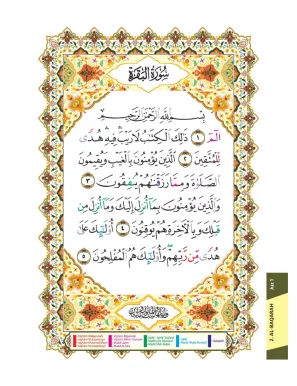 سُورَةُ الْبَقَرَةِ
بِسْمِ اللَّهِ الرَّحْمَٰنِ الرَّحِيمِ
الٓمٓ ١ ذَٰلِكَ الْكِتَٰبُ لَا رَيْبَ فِيهِ هُدًى
لِّلْمُتَّقِينَ ٢ الَّذِينَ يُؤْمِنُونَ بِالْغَيْبِ وَيُقِيمُونَ
الصَّلَوٰةَ وَمِمَّا رَزَقْنَٰهُمْ يُنفِقُونَ ٣
وَالَّذِينَ يُؤْمِنُونَ بِمَآ أُنزِلَ إِلَيْكَ وَمَآ أُنزِلَ مِن
قَبْلِكَ وَبِالْآخِرَةِ هُمْ يُوقِنُونَ ٤ أُولَٰٓئِكَ عَلَىٰ
هُدًى مِّن رَّبِّهِمْ وَأُولَٰٓئِكَ هُمُ الْمُفْلِحُونَ ٥
Juz 1
2. AL-BAQARAH